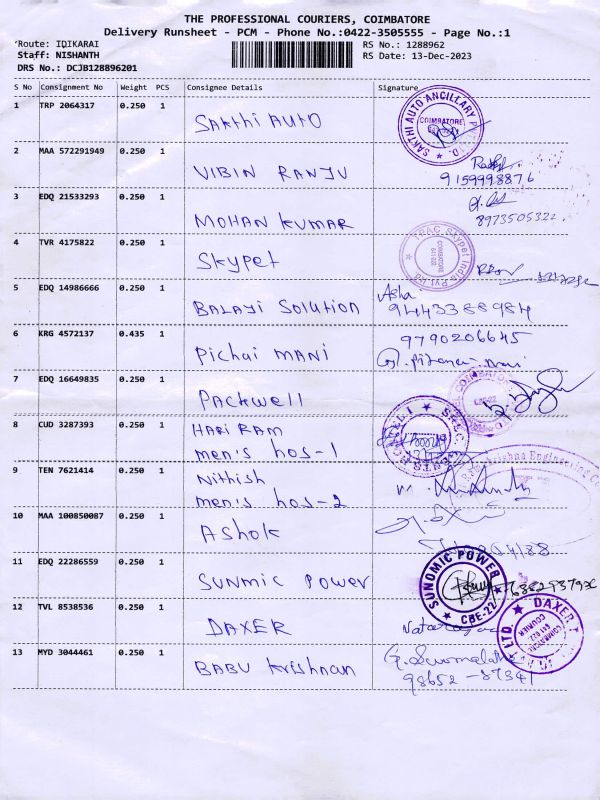 THE PROFESSIONAL COURIERS, COIMBATORE
Delivery Runsheet - PCM - Phone No.:0422-3505555 - Page No.:1
Route: IDIKARAI
RS No.: 1288962
Staff: NISHANTH
RS Date: 13-Dec-2023
DRS No.: DCJB128896201
S No Consignment No Weight PCS Consignee Details Signature
1 TRP 2064317 0.250 1 SAKthi AUTO
SAKTHI AUTO ANCILLARY COIMBATORE
2 MAA 572291949 0.250 1 VIBIN RANJU
9159998876
3 EDQ 21533293 0.250 1 MOHAN KUMAR
8973505322
4 TVR 4175822 0.250 1 Skypet
Skypet India Pvt. Ltd. COIMBATORE
5 EDQ 14986666 0.250 1 BALAJI Solution
Asha
9443388984
6 KRG 4572137 0.435 1 Pichai MANI
9790206645
7 EDQ 16649835 0.250 1 PACKwell
8 CUD 3287393 0.250 1 HARI RAM
men's hos-1
9 TEN 7621414 0.250 1 Nithish
men's hos-2
Krishna Engineering
10 MAA 100850087 0.250 1 Ashok
11 EDQ 22286559 0.250 1 SUNMIC POWER
SUNOMIC POWER CBE-22
12 TVL 8538536 0.250 1 DAXER
DAXER
13 MYD 3044461 0.250 1 BABU Krishnan
98652-87341